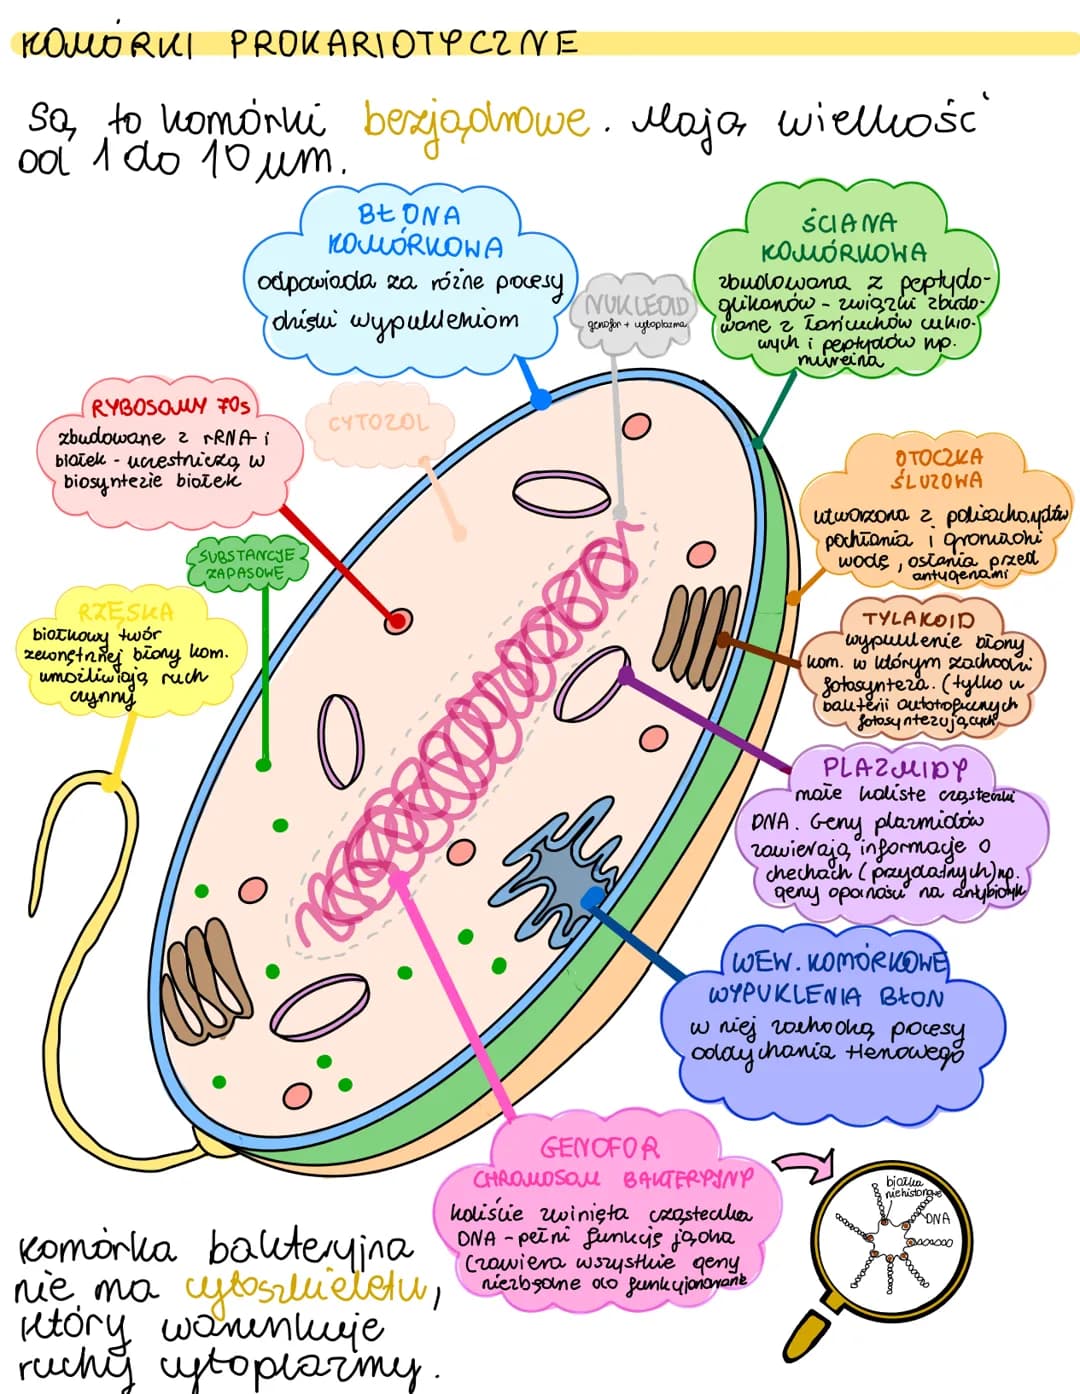 KOMÓRKI PROKARIOTYCZNE
Są to komórki bezjądrowe. Mają wielkość
od 1 do 10 µm.
BŁONA
KOMÓRKOWA
odpowiada za różne procesy
dzięki wypukleniom
NUKLEOID
genofor + cytoplazma
ŚCIANA
KOMÓRKOWA
zbudowana z peptydo-
glikanów - związki zbudo-
wane z łańcuchów cukro-
wych i peptydów np.
mureina
RYBOSOMY 70s
zbudowane z rRNA i
białek - uczestniczą w
biosyntezie białek
CYTOZOL
SUBSTANCJE
ZAPASOWE
OTOCZKA
ŚLUZOWA
utworzona z polisacharydów
pochłania i gromadzi
wodę, osłania przed
antygenami
RZĘSKA
białkowy twór
zewnętrznej błony kom.
umożliwiają ruch
czynny
TYLAKOID
wypuklenie błony
kom. w którym zachodzi
fotosynteza. (tylko u
bakterii autotroficznych
fotosyntezujących
PLAZMIDY
małe koliste cząsteczki
DNA. Geny plazmidów
zawierają informacje o
chechach (przydatnych) np.
geny oporności na antybiotyk
WEW. KOMÓRKOWE
WYPUKLENIA BŁON
w niej zachodzą procesy
oddychania tlenowego
GENOFOR
CHROMOSOM BAKTERYJNY
koliście zwinięta cząsteczka
DNA - pełni funkcję jądra
(zawiera wszystkie geny
niezbędne do funkcjonowania
białka
niehistonowe
DNA
Komórka bakteryjna
nie ma cytoszkieletu,
który warunkuje
ruchy cytoplazmy.